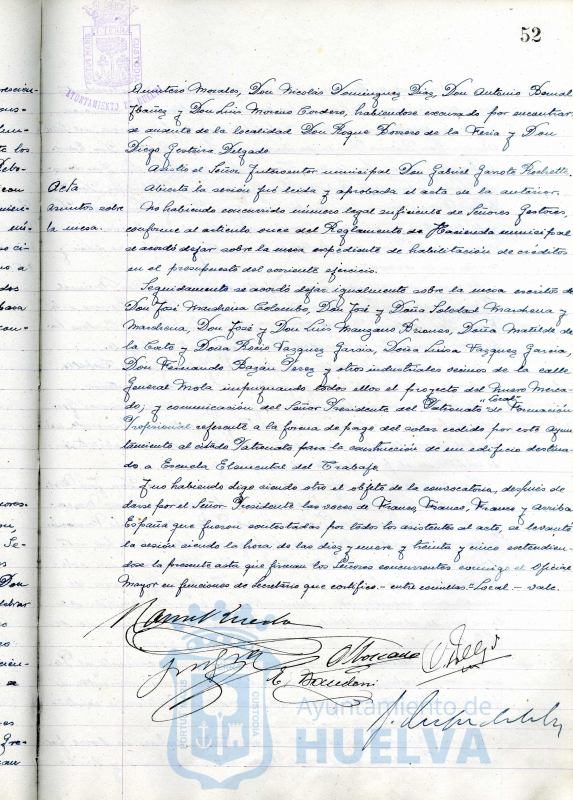 52
Quintero Morales, Don Nicolás Dominguez Diaz, Don Antonio Bernal
Ibañez y Don Luis Moreno Cordero, habiendose excusado por encontrar
se ausente de la localidad Don Roque Borrero de la Feria y Don
Diego Gostaira Delgado.
Asistió el Señor Interventor municipal Don Gabriel Garrote
Acta
Abierta la sesión fué leida y aprobada el acta de la anterior.
asuntos sobre
la mesa.
No habiendo concurrido número legal suficiente de Señores Gestores,
conforme al articulo once del Reglamento de Hacienda municipal
se acordó dejar sobre la mesa expediente de habilitación de créditos
en el presupuesto del corriente ejercicio.
Seguidamente se acordó dejar igualmente sobre la mesa escritos de
Don José Marchena Colombo, Don José y Doña Soledad Marchena y
Marchena, Don José y Don Luis Manzano Briones, Doña Matilde de
la Corte y Doña Rocio Vazquez Garcia, Doña Luisa Vazquez Garcia,
Don Fernando Bazán Perez y otros industriales vecinos de la calle
General Mola impugnando todos ellos el proyecto del Nuevo Merca-
do; y comunicación del Señor Presidente del Patronato "Local" de Formación
Profesional referente a la forma de pago del solar cedido por este ayun
tamiento al citado Patronato para la construcción de un edificio destina-
do a Escuela Elemental del Trabajo
Y no habiendo sido otro el objeto de la convocatoria, después de
darse por el Señor Presidente las voces de Franco, Franco, Franco y Arriba
España que fueron contestadas por todos los asistentes al acto, se levantó
la sesión siendo la hora de las diez y nueve y treinta y cinco extendien-
dose la presente acta que firman los Señores concurrentes conmigo el Oficial
Mayor en funciones de Secretario que certifico.- entre comillas-Local.- vale.
Ayuntamiento de
HUELVA